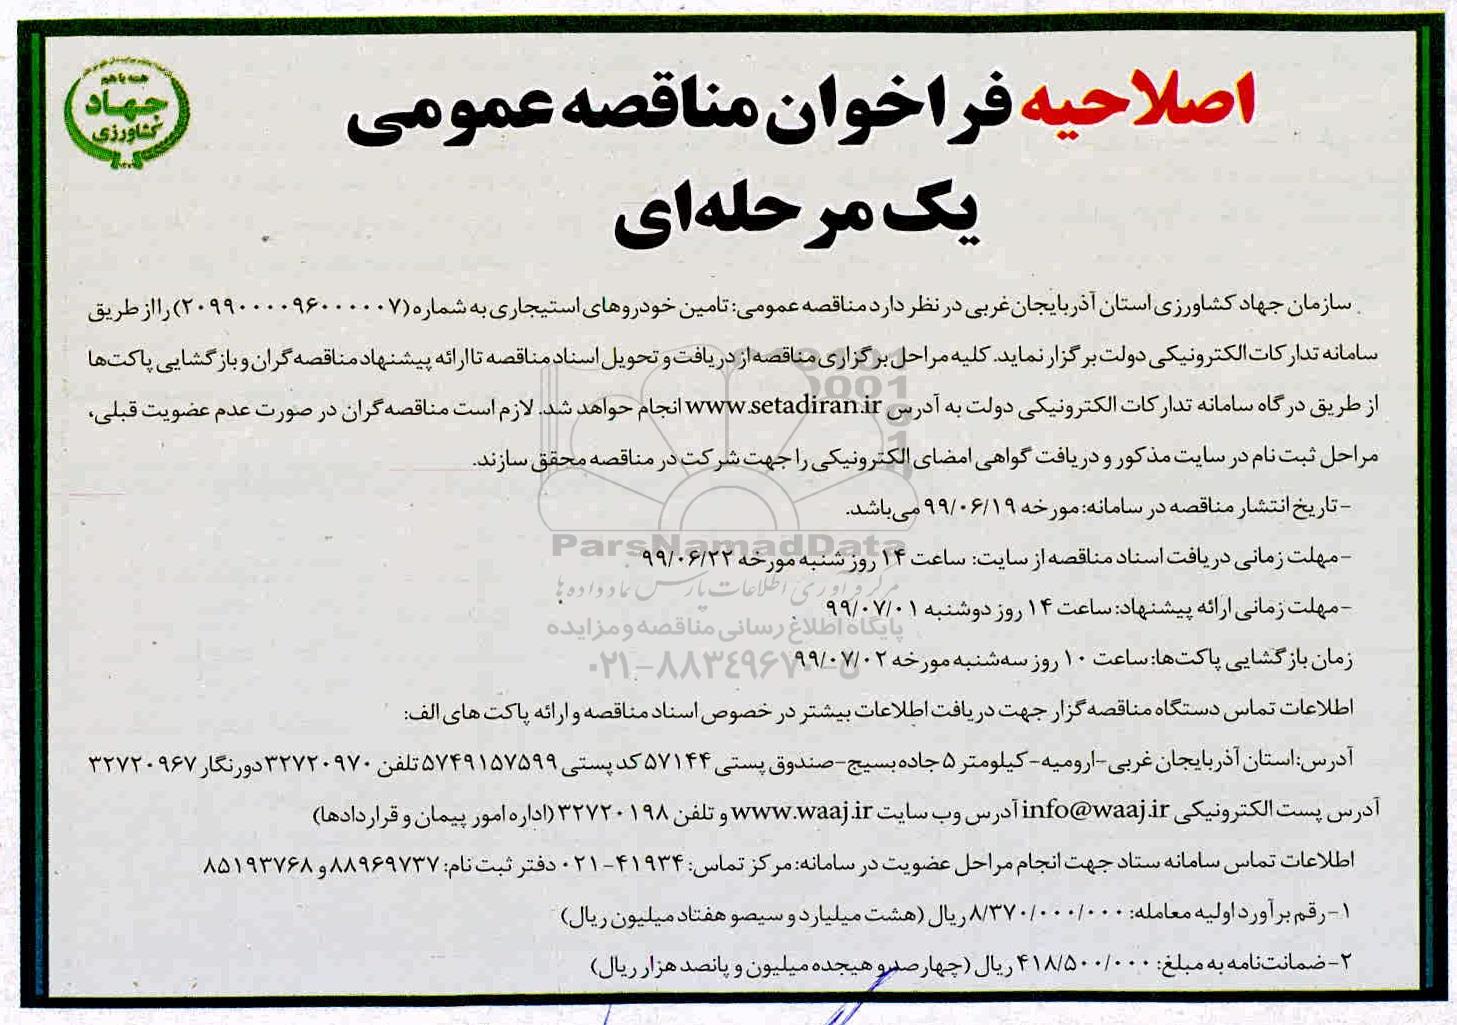 همه با هم
جهاد
کشاورزی
اصلاحیه فراخوان مناقصه عمومی
یک مرحله‌ای
سازمان جهاد کشاورزی استان آذربایجان غربی در نظر دارد مناقصه عمومی: تامین خودروهای استیجاری به شماره (۲۰۹۹۰۰۰۰۹۶۰۰۰۰۰۷) را از طریق
سامانه تدارکات الکترونیکی دولت برگزار نماید. کلیه مراحل برگزاری مناقصه از دریافت و تحویل اسناد مناقصه تا ارائه پیشنهاد مناقصه گران و بازگشایی پاکت‌ها
از طریق درگاه سامانه تدارکات الکترونیکی دولت به آدرس www.setadiran.ir انجام خواهد شد. لازم است مناقصه گران در صورت عدم عضویت قبلی،
مراحل ثبت نام در سایت مذکور و دریافت گواهی امضای الکترونیکی را جهت شرکت در مناقصه محقق سازند.
-تاریخ انتشار مناقصه در سامانه: مورخه ۹۹/۰۶/۱۹ می‌باشد.
-مهلت زمانی دریافت اسناد مناقصه از سایت: ساعت ۱۴ روز شنبه مورخه ۹۹/۰۶/۲۲
-مهلت زمانی ارائه پیشنهاد: ساعت ۱۴ روز دوشنبه ۹۹/۰۷/۰۱
زمان بازگشایی پاکت‌ها: ساعت ۱۰ روز سه‌شنبه مورخه ۹۹/۰۷/۰۲
اطلاعات تماس دستگاه مناقصه گزار جهت دریافت اطلاعات بیشتر در خصوص اسناد مناقصه و ارائه پاکت های الف:
آدرس: استان آذربایجان غربی-ارومیه-کیلومتر ۵ جاده بسیج-صندوق پستی ۵۷۱۴۴ کد پستی ۵۷۴۹۱۵۷۵۹۹ تلفن ۳۲۷۲۰۹۷۰ دورنگار ۳۲۷۲۰۹۶۷
آدرس پست الکترونیکی info@waaj.ir آدرس وب سایت www.waaj.ir و تلفن ۳۲۷۲۰۱۹۸ (اداره امور پیمان و قراردادها)
اطلاعات تماس سامانه ستاد جهت انجام مراحل عضویت در سامانه: مرکز تماس: ۴۱۹۳۴-۰۲۱ دفتر ثبت نام: ۸۸۹۶۹۷۳۷ و ۸۵۱۹۳۷۶۸
۱-رقم برآورد اولیه معامله: ۸/۳۷۰/۰۰۰/۰۰۰ ریال (هشت میلیارد و سیصد و هفتاد میلیون ریال)
۲-ضمانت‌نامه به مبلغ: ۴۱۸/۵۰۰/۰۰۰ ریال (چهارصد و هیجده میلیون و پانصد هزار ریال)
ParsNamadData
مرکز فرآوری اطلاعات پارس نماد داده‌ها
پایگاه اطلاع رسانی مناقصه و مزایده
۰۲۱-۸۸۳۴۹۶۷۰-۵